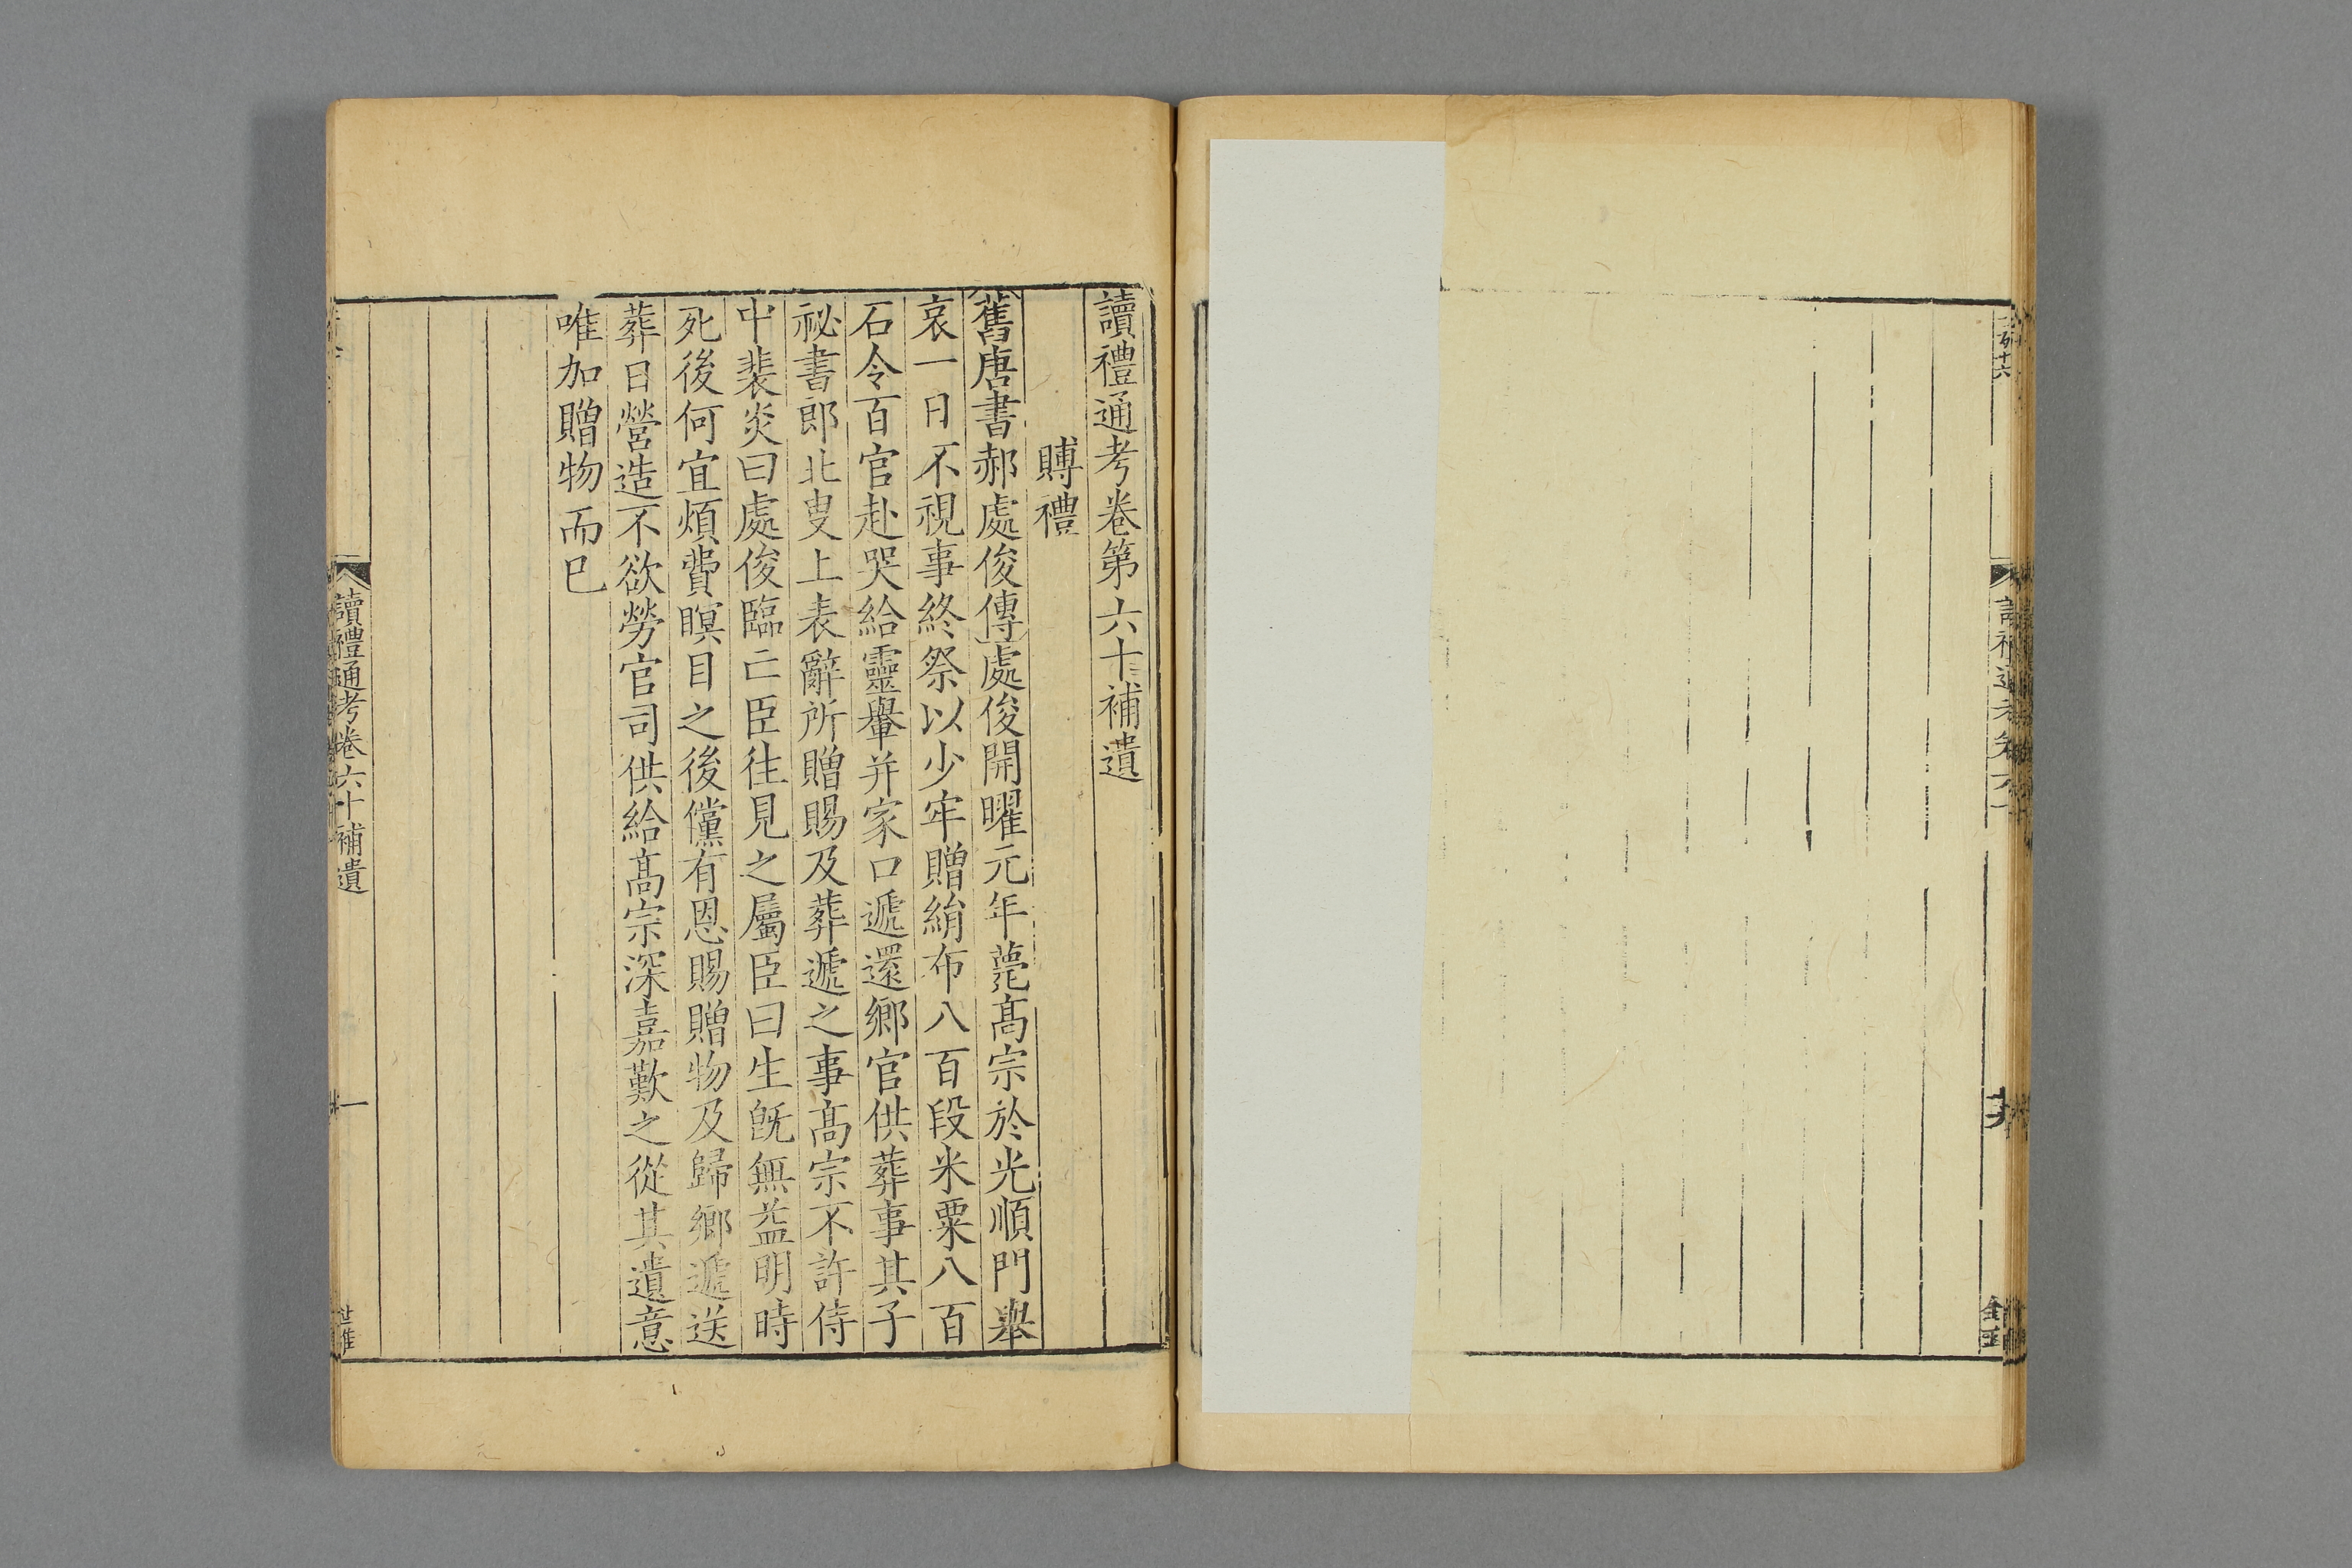 讀禮通考卷第六十補遺
賻禮
舊唐書郝處俊傳處俊開曜元年薨髙宗於光順門舉
哀一日不視事終祭以少牢贈絹布八百段米粟八百
石令百官赴哭給靈轝并家口遞還鄉官供葬事其子
祕書郎北叟上表辭所贈賜及葬遞之事髙宗不許侍
中裴炎曰處俊臨亡臣往見之屬臣曰生旣無益明時
死後何宜煩費瞑目之後儻有恩賜贈物及歸鄉遞送
葬日營造不欲勞官司供給髙宗深嘉歎之從其遺意
唯加贈物而已
讀禮通考卷六十補遺
一